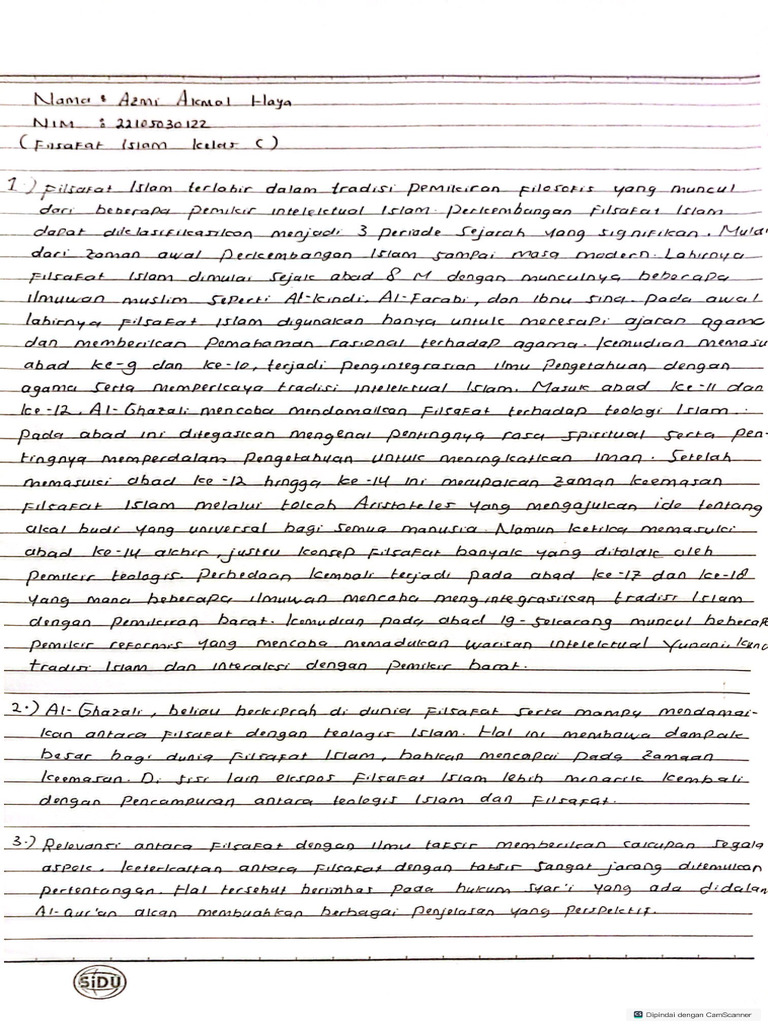 Nama : Azmi Akmal Haya
NIM : 22105030122
(Filsafat Islam kelas C)
1.) Filsafat Islam terlahir dalam tradisi pemikiran filosofis yang muncul
dari beberapa pemikir intelektual Islam. Perkembangan Filsafat Islam
dapat diklasifikasikan menjadi 3 periode sejarah yang signifikan. Mulai
dari zaman awal perkembangan Islam sampai masa modern. Lahirnya
Filsafat Islam dimulai sejak abad 8 M dengan munculnya beberapa
ilmuwan muslim seperti Al-kindi, Al-Farabi, dan Ibnu sina. Pada awal
lahirnya Filsafat Islam digunakan hanya untuk meresapi ajaran agama
dan memberikan pemahaman rasional terhadap agama. Kemudian memasu
abad ke-9 dan ke-10, terjadi pengintegrasian ilmu pengetahuan dengan
agama serta memperkaya tradisi intelektual Islam. Masuk abad ke-11 dan
ke-12, Al-Ghazali mencoba mendamaikan Filsafat terhadap teologi Islam.
Pada abad ini ditegaskan mengenai pentingnya rasa spiritual serta pen-
tingnya memperdalam pengetahuan untuk meningkatkan iman. Setelah
memasuki abad ke-12 hingga ke-14 ini merupakan zaman keemasan
Filsafat Islam melalui tokoh Aristoteles yang mengajukan ide tentang
akal budi yang universal bagi semua manusia. Namun ketika memasuki
abad ke-14 akhir, justru konsep filsafat banyak yang ditolak oleh
pemikir teologis. Perbedaan kembali terjadi pada abad ke-17 dan ke-18
yang mana beberapa ilmuwan mencoba mengintegrasikan tradisi Islam
dengan pemikiran barat. Kemudian pada abad 19-sekarang muncul beberap
pemikir reformis yang mencoba memadukan warisan intelektual Yunani kuno
tradisi Islam dan interaksi dengan pemikir barat.
2.) Al-Ghazali, beliau berkiprah di dunia Filsafat serta mampu mendamai-
kan antara Filsafat dengan teologis Islam. Hal ini membawa dampak
besar bagi dunia Filsafat Islam, bahkan mencapai pada zamaan
keemasan. Di sisi lain ekspos Filsafat Islam lebih menarik kembali
dengan pencampuran antara teologis Islam dan Filsafat.
3.) Relevansi antara Filsafat dengan ilmu tafsir memberikan cakupan segala
aspek. Keterkaitan antara Filsafat dengan tafsir sangat jarang ditemukan
pertentangan. Hal tersebut berimbas pada hukum syar'i yang ada didalam
Al-Qur'an akan membuahkan berbagai penjelasan yang perspektif.
SiDU
Dipindai dengan CamScanner